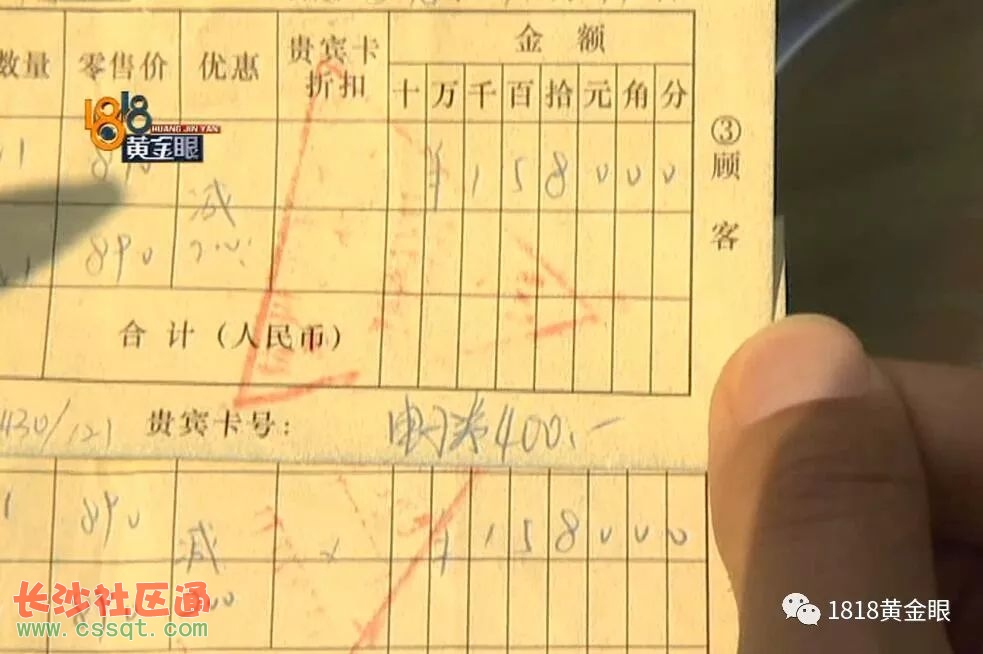 金 额
数量 零售价 优惠 贵宾卡折扣 十 万 千 百 拾 元 角 分
③顾客
1818
HUANG JIN YAN
黄金眼
1 890 减 ¥ 1 5 8 0 0 0
890
合 计（人民币）
430/121 贵宾卡号： 400.-
1 890 减 × ¥ 1 5 8 0 0 0
长沙社区通
www.cssqt.com
1818黄金眼